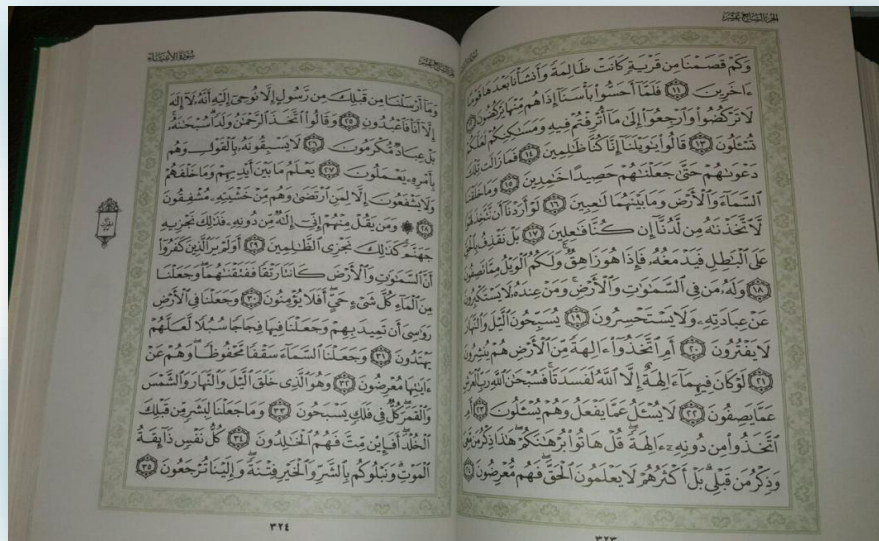 الجزء السابع عشر
وَكَمْ قَصَمْنَا مِن قَرْيَةٍ كَانَتْ ظَالِمَةً وَأَنشَأْنَا بَعْدَهَا قَوْمًا
ءَاخَرِينَ ١١ فَلَمَّآ أَحَسُّوا۟ بَأْسَنَآ إِذَا هُم مِّنْهَا يَرْكُضُونَ ١٢
لَا تَرْكُضُوا۟ وَٱرْجِعُوٓا۟ إِلَىٰ مَآ أُتْرِفْتُمْ فِيهِ وَمَسَٰكِنِكُمْ لَعَلَّكُمْ
تُسْـَٔلُونَ ١٣ قَالُوا۟ يَٰوَيْلَنَآ إِنَّا كُنَّا ظَٰلِمِينَ ١٤ فَمَا زَالَت تِّلْكَ
دَعْوَىٰهُمْ حَتَّىٰ جَعَلْنَٰهُمْ حَصِيدًا خَٰمِدِينَ ١٥ وَمَا خَلَقْنَا
ٱلسَّمَآءَ وَٱلْأَرْضَ وَمَا بَيْنَهُمَا لَٰعِبِينَ ١٦ لَوْ أَرَدْنَآ أَن نَّتَّخِذَ لَهْوًا
لَّٱتَّخَذْنَٰهُ مِن لَّدُنَّآ إِن كُنَّا فَٰعِلِينَ ١٧ بَلْ نَقْذِفُ بِٱلْحَقِّ
عَلَى ٱلْبَٰطِلِ فَيَدْمَغُهُۥ فَإِذَا هُوَ زَاهِقٌ وَلَكُمُ ٱلْوَيْلُ مِمَّا تَصِفُونَ
١٨ وَلَهُۥ مَن فِى ٱلسَّمَٰوَٰتِ وَٱلْأَرْضِ وَمَنْ عِندَهُۥ لَا يَسْتَكْبِرُونَ
عَنْ عِبَادَتِهِۦ وَلَا يَسْتَحْسِرُونَ ١٩ يُسَبِّحُونَ ٱلَّيْلَ وَٱلنَّهَارَ
لَا يَفْتُرُونَ ٢٠ أَمِ ٱتَّخَذُوٓا۟ ءَالِهَةً مِّنَ ٱلْأَرْضِ هُمْ يُنشِرُونَ
٢١ لَوْ كَانَ فِيهِمَآ ءَالِهَةٌ إِلَّا ٱللَّهُ لَفَسَدَتَا فَسُبْحَٰنَ ٱللَّهِ رَبِّ ٱلْعَرْشِ
عَمَّا يَصِفُونَ ٢٢ لَا يُسْـَٔلُ عَمَّا يَفْعَلُ وَهُمْ يُسْـَٔلُونَ ٢٣ أَمِ
ٱتَّخَذُوا۟ مِن دُونِهِۦٓ ءَالِهَةً قُلْ هَاتُوا۟ بُرْهَٰنَكُمْ هَٰذَا ذِكْرُ مَن مَّعِىَ
وَذِكْرُ مَن قَبْلِى بَلْ أَكْثَرُهُمْ لَا يَعْلَمُونَ ٱلْحَقَّ فَهُم مُّعْرِضُونَ ٢٤
٣٢٣
سورة الأنبياء
وَمَآ أَرْسَلْنَا مِن قَبْلِكَ مِن رَّسُولٍ إِلَّا نُوحِىٓ إِلَيْهِ أَنَّهُۥ لَآ إِلَٰهَ
إِلَّآ أَنَا۠ فَٱعْبُدُونِ ٢٥ وَقَالُوا۟ ٱتَّخَذَ ٱلرَّحْمَٰنُ وَلَدًا سُبْحَٰنَهُۥ
بَلْ عِبَادٌ مُّكْرَمُونَ ٢٦ لَا يَسْبِقُونَهُۥ بِٱلْقَوْلِ وَهُم
بِأَمْرِهِۦ يَعْمَلُونَ ٢٧ يَعْلَمُ مَا بَيْنَ أَيْدِيهِمْ وَمَا خَلْفَهُمْ
وَلَا يَشْفَعُونَ إِلَّا لِمَنِ ٱرْتَضَىٰ وَهُم مِّنْ خَشْيَتِهِۦ مُشْفِقُونَ
٢٨ ۞ وَمَن يَقُلْ مِنْهُمْ إِنِّىٓ إِلَٰهٌ مِّن دُونِهِۦ فَذَٰلِكَ نَجْزِيهِ
جَهَنَّمَ كَذَٰلِكَ نَجْزِى ٱلظَّٰلِمِينَ ٢٩ أَوَلَمْ يَرَ ٱلَّذِينَ كَفَرُوٓا۟
أَنَّ ٱلسَّمَٰوَٰتِ وَٱلْأَرْضَ كَانَتَا رَتْقًا فَفَتَقْنَٰهُمَا وَجَعَلْنَا
مِنَ ٱلْمَآءِ كُلَّ شَىْءٍ حَىٍّ أَفَلَا يُؤْمِنُونَ ٣٠ وَجَعَلْنَا فِى ٱلْأَرْضِ
رَوَٰسِىَ أَن تَمِيدَ بِهِمْ وَجَعَلْنَا فِيهَا فِجَاجًا سُبُلًا لَّعَلَّهُمْ
يَهْتَدُونَ ٣١ وَجَعَلْنَا ٱلسَّمَآءَ سَقْفًا مَّحْفُوظًا وَهُمْ عَنْ
ءَايَٰتِهَا مُعْرِضُونَ ٣٢ وَهُوَ ٱلَّذِى خَلَقَ ٱلَّيْلَ وَٱلنَّهَارَ وَٱلشَّمْسَ
وَٱلْقَمَرَ كُلٌّ فِى فَلَكٍ يَسْبَحُونَ ٣٣ وَمَا جَعَلْنَا لِبَشَرٍ مِّن قَبْلِكَ
ٱلْخُلْدَ أَفَإِي۟ن مِّتَّ فَهُمُ ٱلْخَٰلِدُونَ ٣٤ كُلُّ نَفْسٍ ذَآئِقَةُ
ٱلْمَوْتِ وَنَبْلُوكُم بِٱلشَّرِّ وَٱلْخَيْرِ فِتْنَةً وَإِلَيْنَا تُرْجَعُونَ ٣٥
٣٢٤